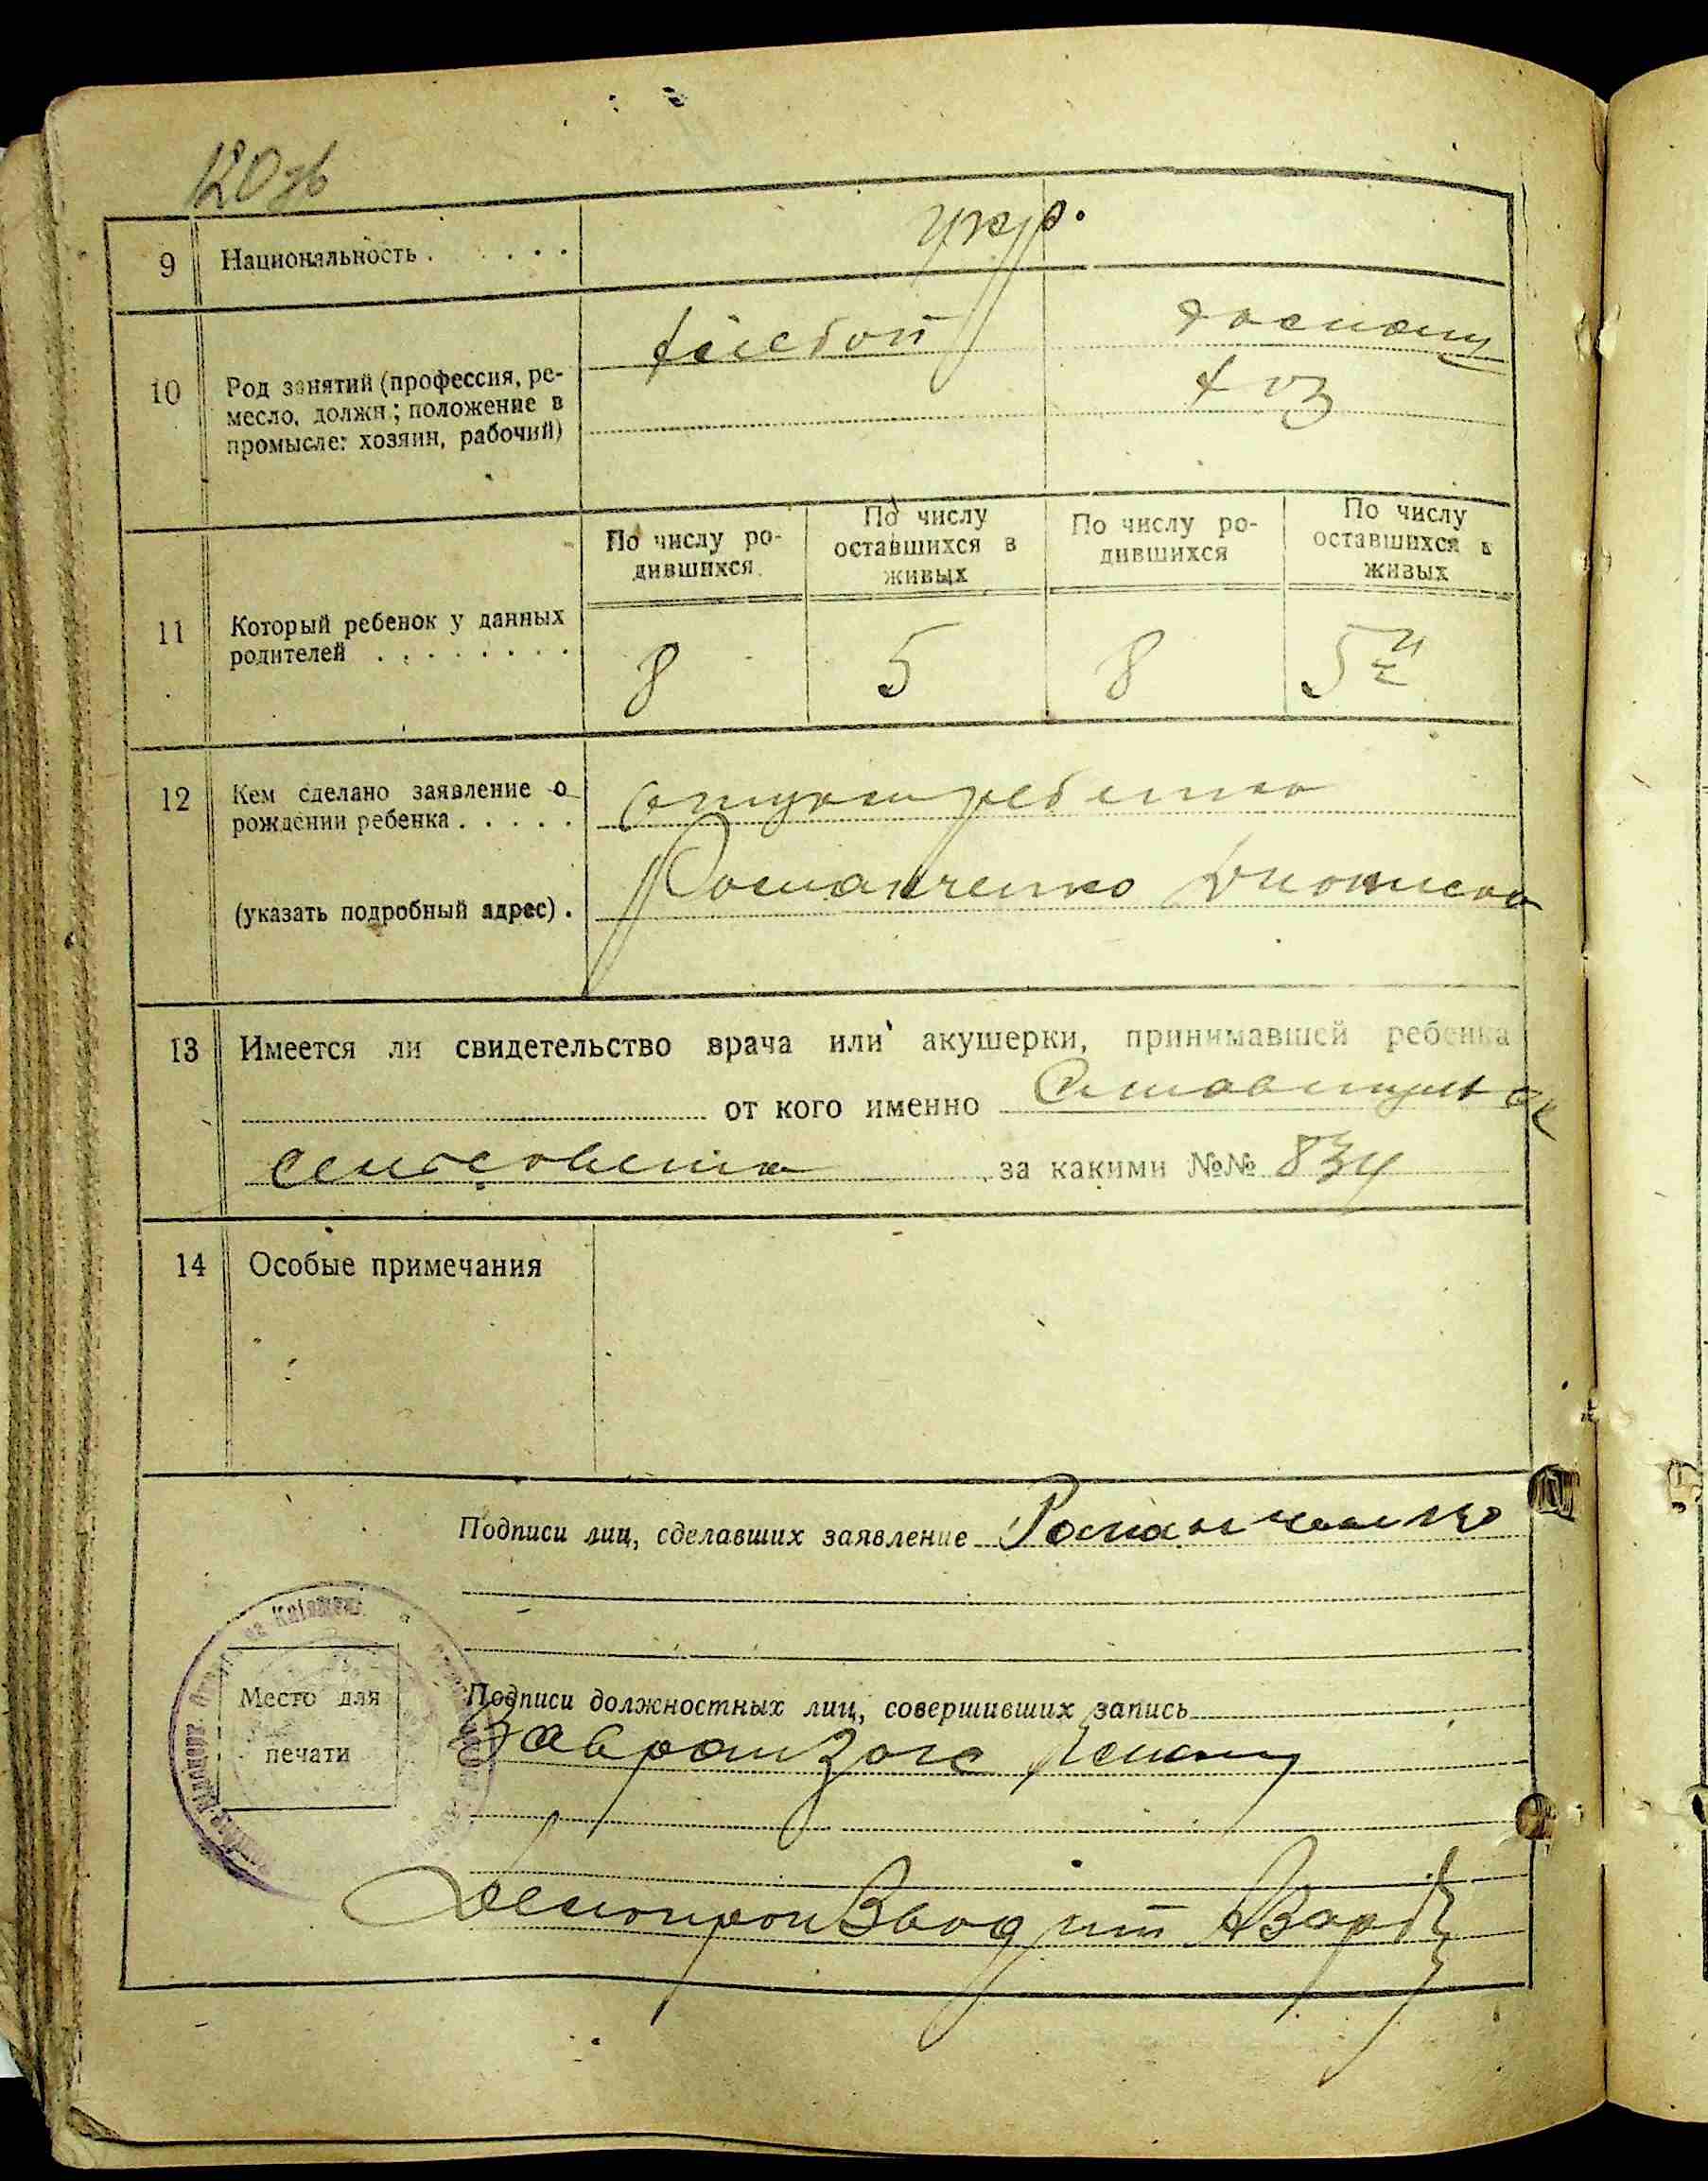 120 зв
9 Национальность . . . . . укр.
10 Род занятий (профессия, ре-
месло, должн.; положение в
промысле: хозяин, рабочий)
хлебоп
домаш
хоз
По числу ро-
дившихся
По числу
оставшихся в
живых
По числу ро-
дившихся
По числу
оставшихся в
живых
11 Который ребенок у данных
родителей . . . . . . . .
8 5 8 5
12 Кем сделано заявление о
рождении ребенка . . . . .
отцом ребенка
(указать подробный адрес) .
Романченко
13 Имеется ли свидетельство врача или акушерки, принимавшей ребенка
от кого именно
сельсовета за какими №№ 834
14 Особые примечания
Подписи лиц, сделавших заявление Романченко
Место для
печати
Подписи должностных лиц, совершивших запись
Зав райзагс
Делопроизводит